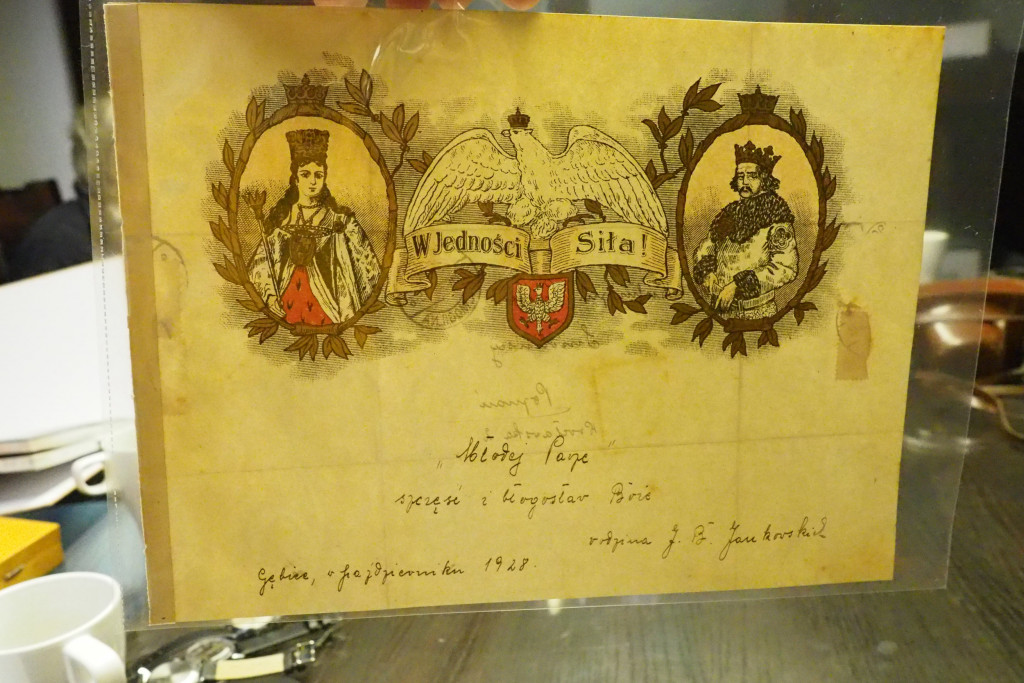 W Jedności Siła!
„Młodej Parze”
szczęść i błogosław Boże
rodzina J. B. Jankowskich
Gębice, w październiku 1928.